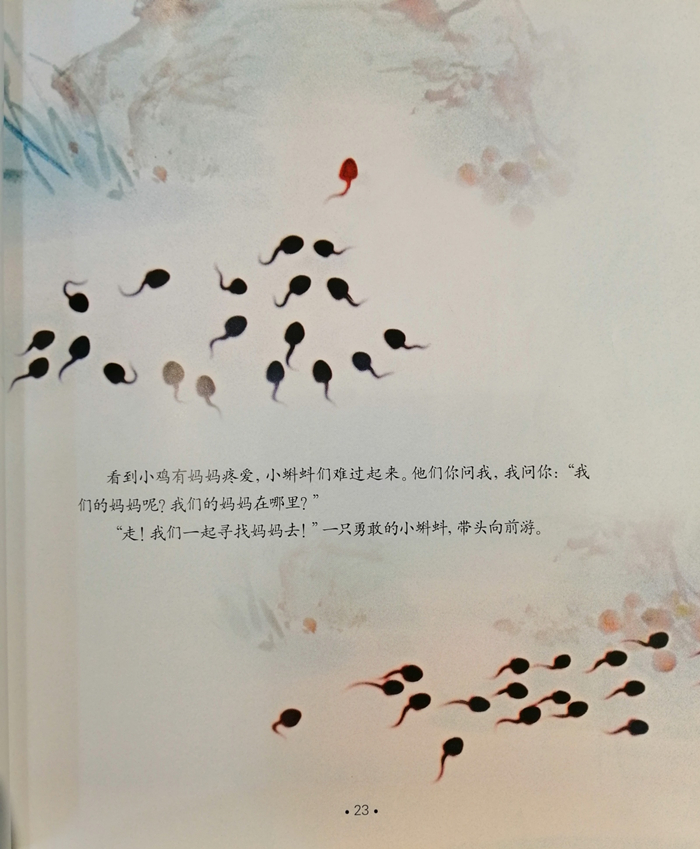 看到小鸡有妈妈疼爱，小蝌蚪们难过起来。他们你问我，我问你：“我
们的妈妈呢？我们的妈妈在哪里？”
“走！我们一起寻找妈妈去！”一只勇敢的小蝌蚪，带头向前游。
• 23 •